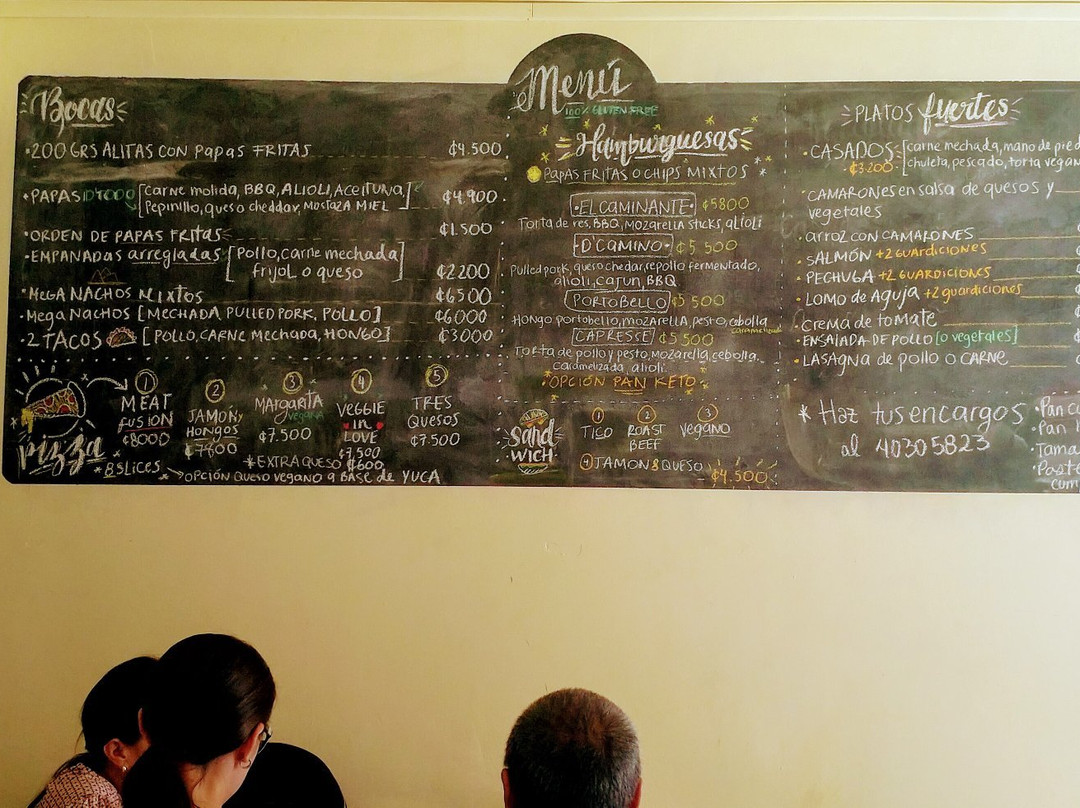 Menú
100% GLUTEN FREE
Bocas
•200 GRS ALITAS CON PAPAS FRITAS ₡4.500
•PAPAS [CARNE MOLIDA, BBQ, ALIOLI, ACEITUNA, ₡4.900
PEPINILLO, QUESO CHEDDAR, MOSTAZA MIEL]
•ORDEN DE PAPAS FRITAS ₡1.500
•EMPANADAS ARREGLADAS [POLLO, CARNE MECHADA
FRIJOL O QUESO] ₡2200
•MEGA NACHOS MIXTOS ₡6500
•MEGA NACHOS [MECHADA, PULLED PORK, POLLO] ₡6000
•2 TACOS [POLLO, CARNE MECHADA, HONGO] ₡3000
PIZZA
*8 SLICES
1
MEAT
FUSION
₡8000
2
JAMON y
HONGOS
₡7600
3
MARGARITA
vegana
₡7.500
4
VEGGIE
IN
LOVE
₡7,500
5
TRES
QUESOS
₡7.500
*EXTRA QUESO ₡600
→OPCIÓN QUESO VEGANO a BASE de YUCA
Hamburguesas
PAPAS FRITAS O CHIPS MIXTOS
•EL CAMINANTE• ₡5800
TORTA DE RES, BBQ, MOZARELLA STICKS, ALIOLI
•D'CAMINO• ₡5 500
Pulled pork, queso chedar, repollo fermentado,
alioli, cajun, BBQ
PORTOBELLO ₡5 500
HONGO PORTOBELLO, MOZARELLA, PESTO, CEBOLLA
CAPRESSE ₡5 500
TORTA DE POLLO Y PESTO, MOZARELLA, CEBOLLA
CARAMELIZADA, ALIOLI
*OPCIÓN PAN KETO*
SAND
WICH
1
TICO
2
ROAST
BEEF
3
VEGANO
4 JAMON & QUESO
₡4.500
PLATOS fuertes
•CASADOS [carne mechada, mano de pied
₡3.200 chuleta, pescado, torta vegan
•CAMARONES en salsa de quesos y
vegetales
•ARROZ CON CAMARONES
•SALMÓN +2 guardiciones
•PECHUGA +2 GUARDICIONES
•LOMO DE AGUJA +2 guardiciones
•CREMA de TOMATE
•ENSALADA DE POLLO [o vegetales]
•LASAGNA de pollo o CARNE
* Haz tus encargos
al 40305823
•Pan c
•Pan
•Tama
•Paste
cum